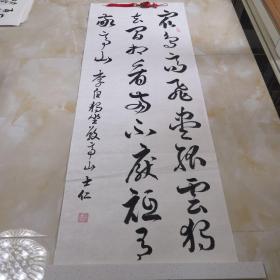 衆鸟高飞尽孤雲独
去闲相看两不厌祗有
敬亭山 李白独坐敬亭山 士仁